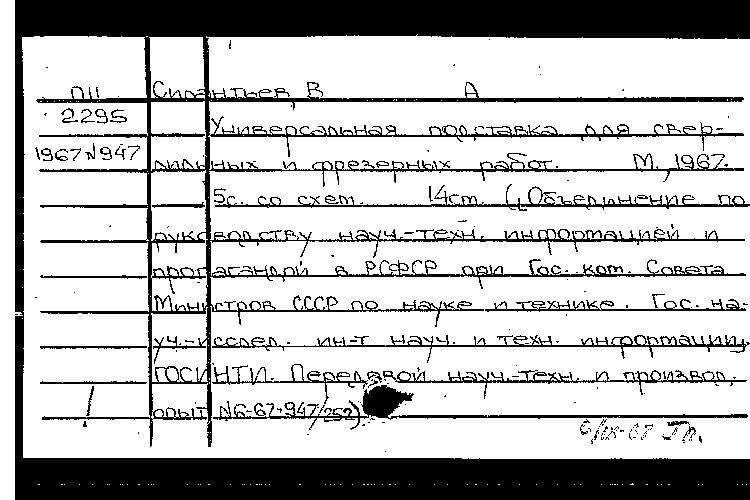 П11 Силантьев, В А
2295 Универсальная подставка для свер-
1967 №947 лильных и фрезерных работ. М., 1967.
5с. со схем. 14см. (Объединение по
руководству науч.-техн. информацией и
пропагандой в РСФСР при Гос. ком. Совета
Министров СССР по науке и технике. Гос. на-
уч.-исслед. ин-т науч. и техн. информации,
ГОСИНТИ. Передовой науч.-техн. и производ.
опыт №6-67-947/252)
6/IX-67